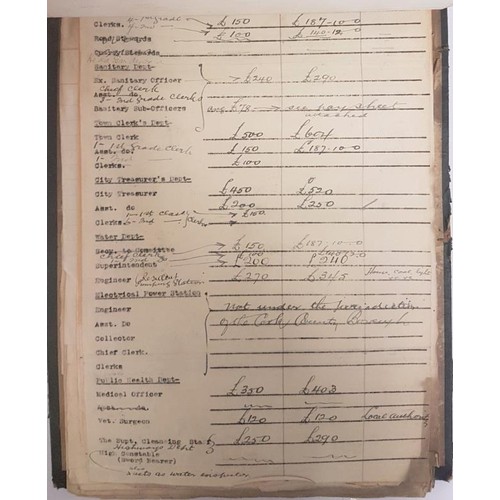 Clerks. £150 £187-10-0
Road/Stewards £100 £140-12-0
Quarry/Stewards
Sanitary Dept-
Ex. Sanitary Officer £240 £290
Chief Clerk
Asst. do.
3- 2nd Grade Clerks
Sanitary Sub-Officers £78 see new sheet
attached
Town Clerk's Dept-
Town Clerk £500 £604
1- 1st Grade Clerk
Asst. do. £150 £187-10-0
Clerks. £100
City Treasurer's Dept-
City Treasurer £450 £520
Asst. do £200 £250
Clerks. £150
Water Dept-
Secy. to Committee £150 £187-10-0
Chief Clerk
Superintendent £200 £240
Engineer (Resident Pumping Station) £270 £345 House, coal, light
Electrical Power Station
Engineer Not under the Jurisdiction
Asst. Do of the Cork County Borough.
Collector
Chief Clerk.
Clerks
Public Health Dept-
Medical Officer £350 £403
Asst. do.
Vet. Surgeon £120 £120 Local authority
The Supt. Cleansing Staff £250 £290
Highways Dept
High Constable
(Sword Bearer)
also
Acts as water inspector